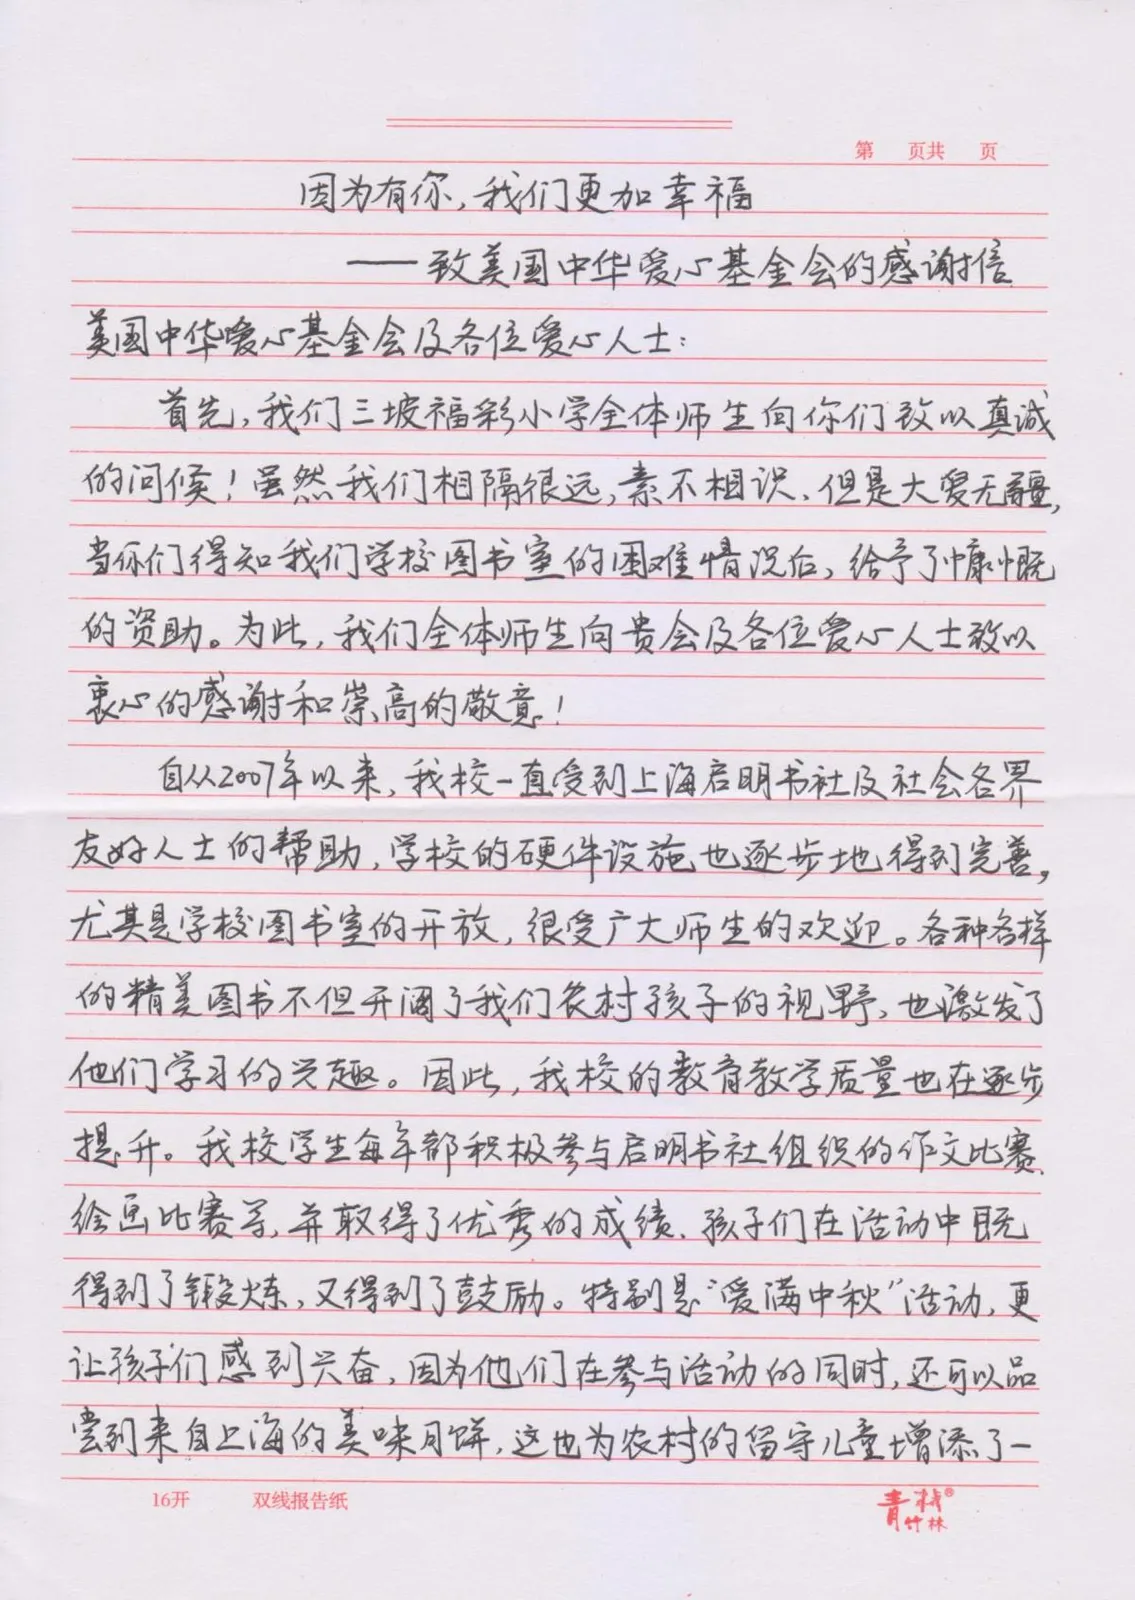 第 页共 页
因为有你，我们更加幸福
——致美国中华爱心基金会的感谢信
美国中华爱心基金会及各位爱心人士：
首先，我们三坡福彩小学全体师生向你们致以真诚
的问候！虽然我们相隔很远，素不相识，但是大爱无疆，
当你们得知我们学校图书室的困难情况后，给予了慷慨
的资助。为此，我们全体师生向贵会及各位爱心人士致以
衷心的感谢和崇高的敬意！
自从2007年以来，我校一直受到上海启明书社及社会各界
友好人士的帮助，学校的硬件设施也逐步地得到完善，
尤其是学校图书室的开放，很受广大师生的欢迎。各种各样
的精美图书不但开阔了我们农村孩子的视野，也激发了
他们学习的兴趣。因此，我校的教育教学质量也在逐步
提升。我校学生每年都积极参与启明书社组织的作文比赛、
绘画比赛等，并取得了优秀的成绩，孩子们在活动中既
得到了锻炼，又得到了鼓励。特别是“爱满中秋”活动，更
让孩子们感到兴奋，因为他们在参与活动的同时，还可以品
尝到来自上海的美味月饼，这也为农村的留守儿童增添了一
16开 双线报告纸
青竹林